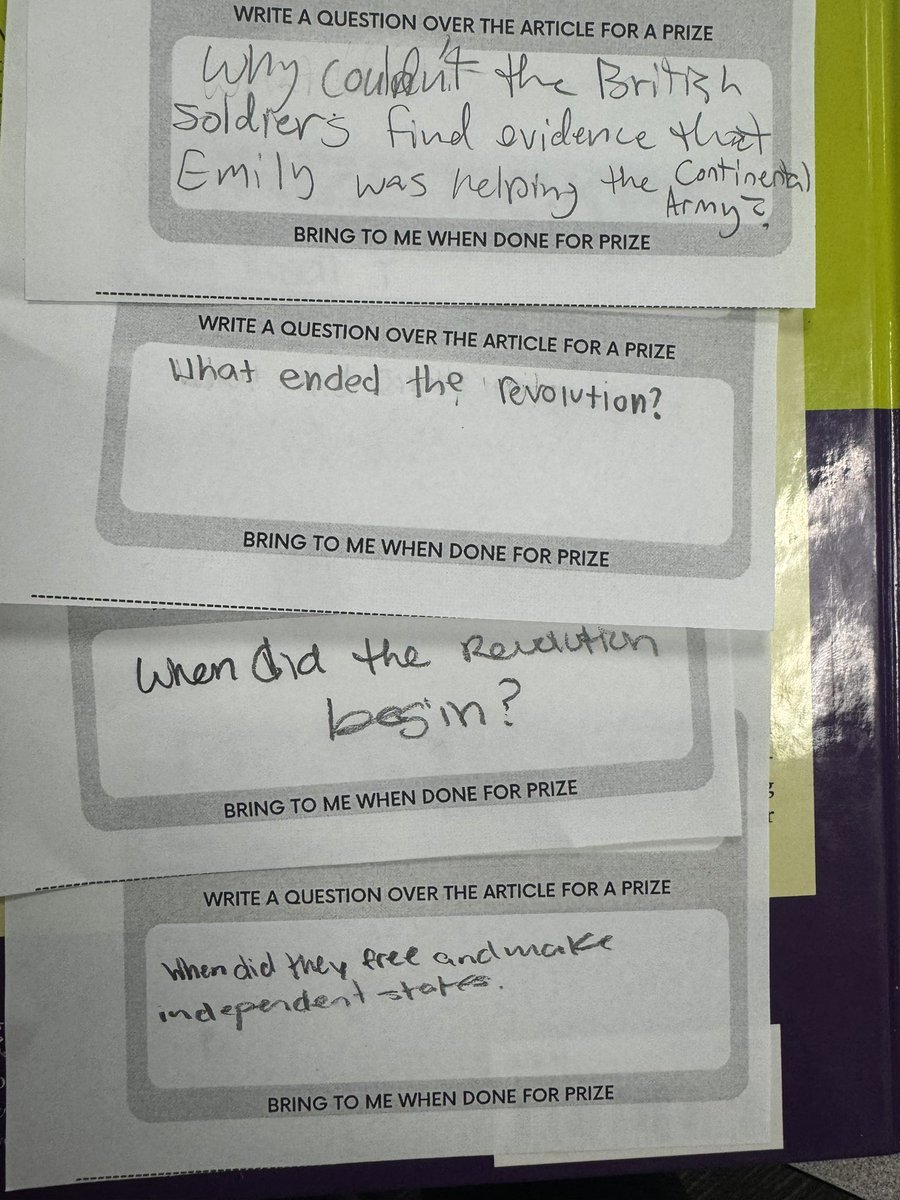 WRITE A QUESTION OVER THE ARTICLE FOR A PRIZE
Why couldn't the British
soldiers find evidence that
Emily was helping the Continental
Army?
BRING TO ME WHEN DONE FOR PRIZE
WRITE A QUESTION OVER THE ARTICLE FOR A PRIZE
What ended the revolution?
BRING TO ME WHEN DONE FOR PRIZE
When did the Revolution
begin?
BRING TO ME WHEN DONE FOR PRIZE
WRITE A QUESTION OVER THE ARTICLE FOR A PRIZE
When did they free and make
independent states.
BRING TO ME WHEN DONE FOR PRIZE